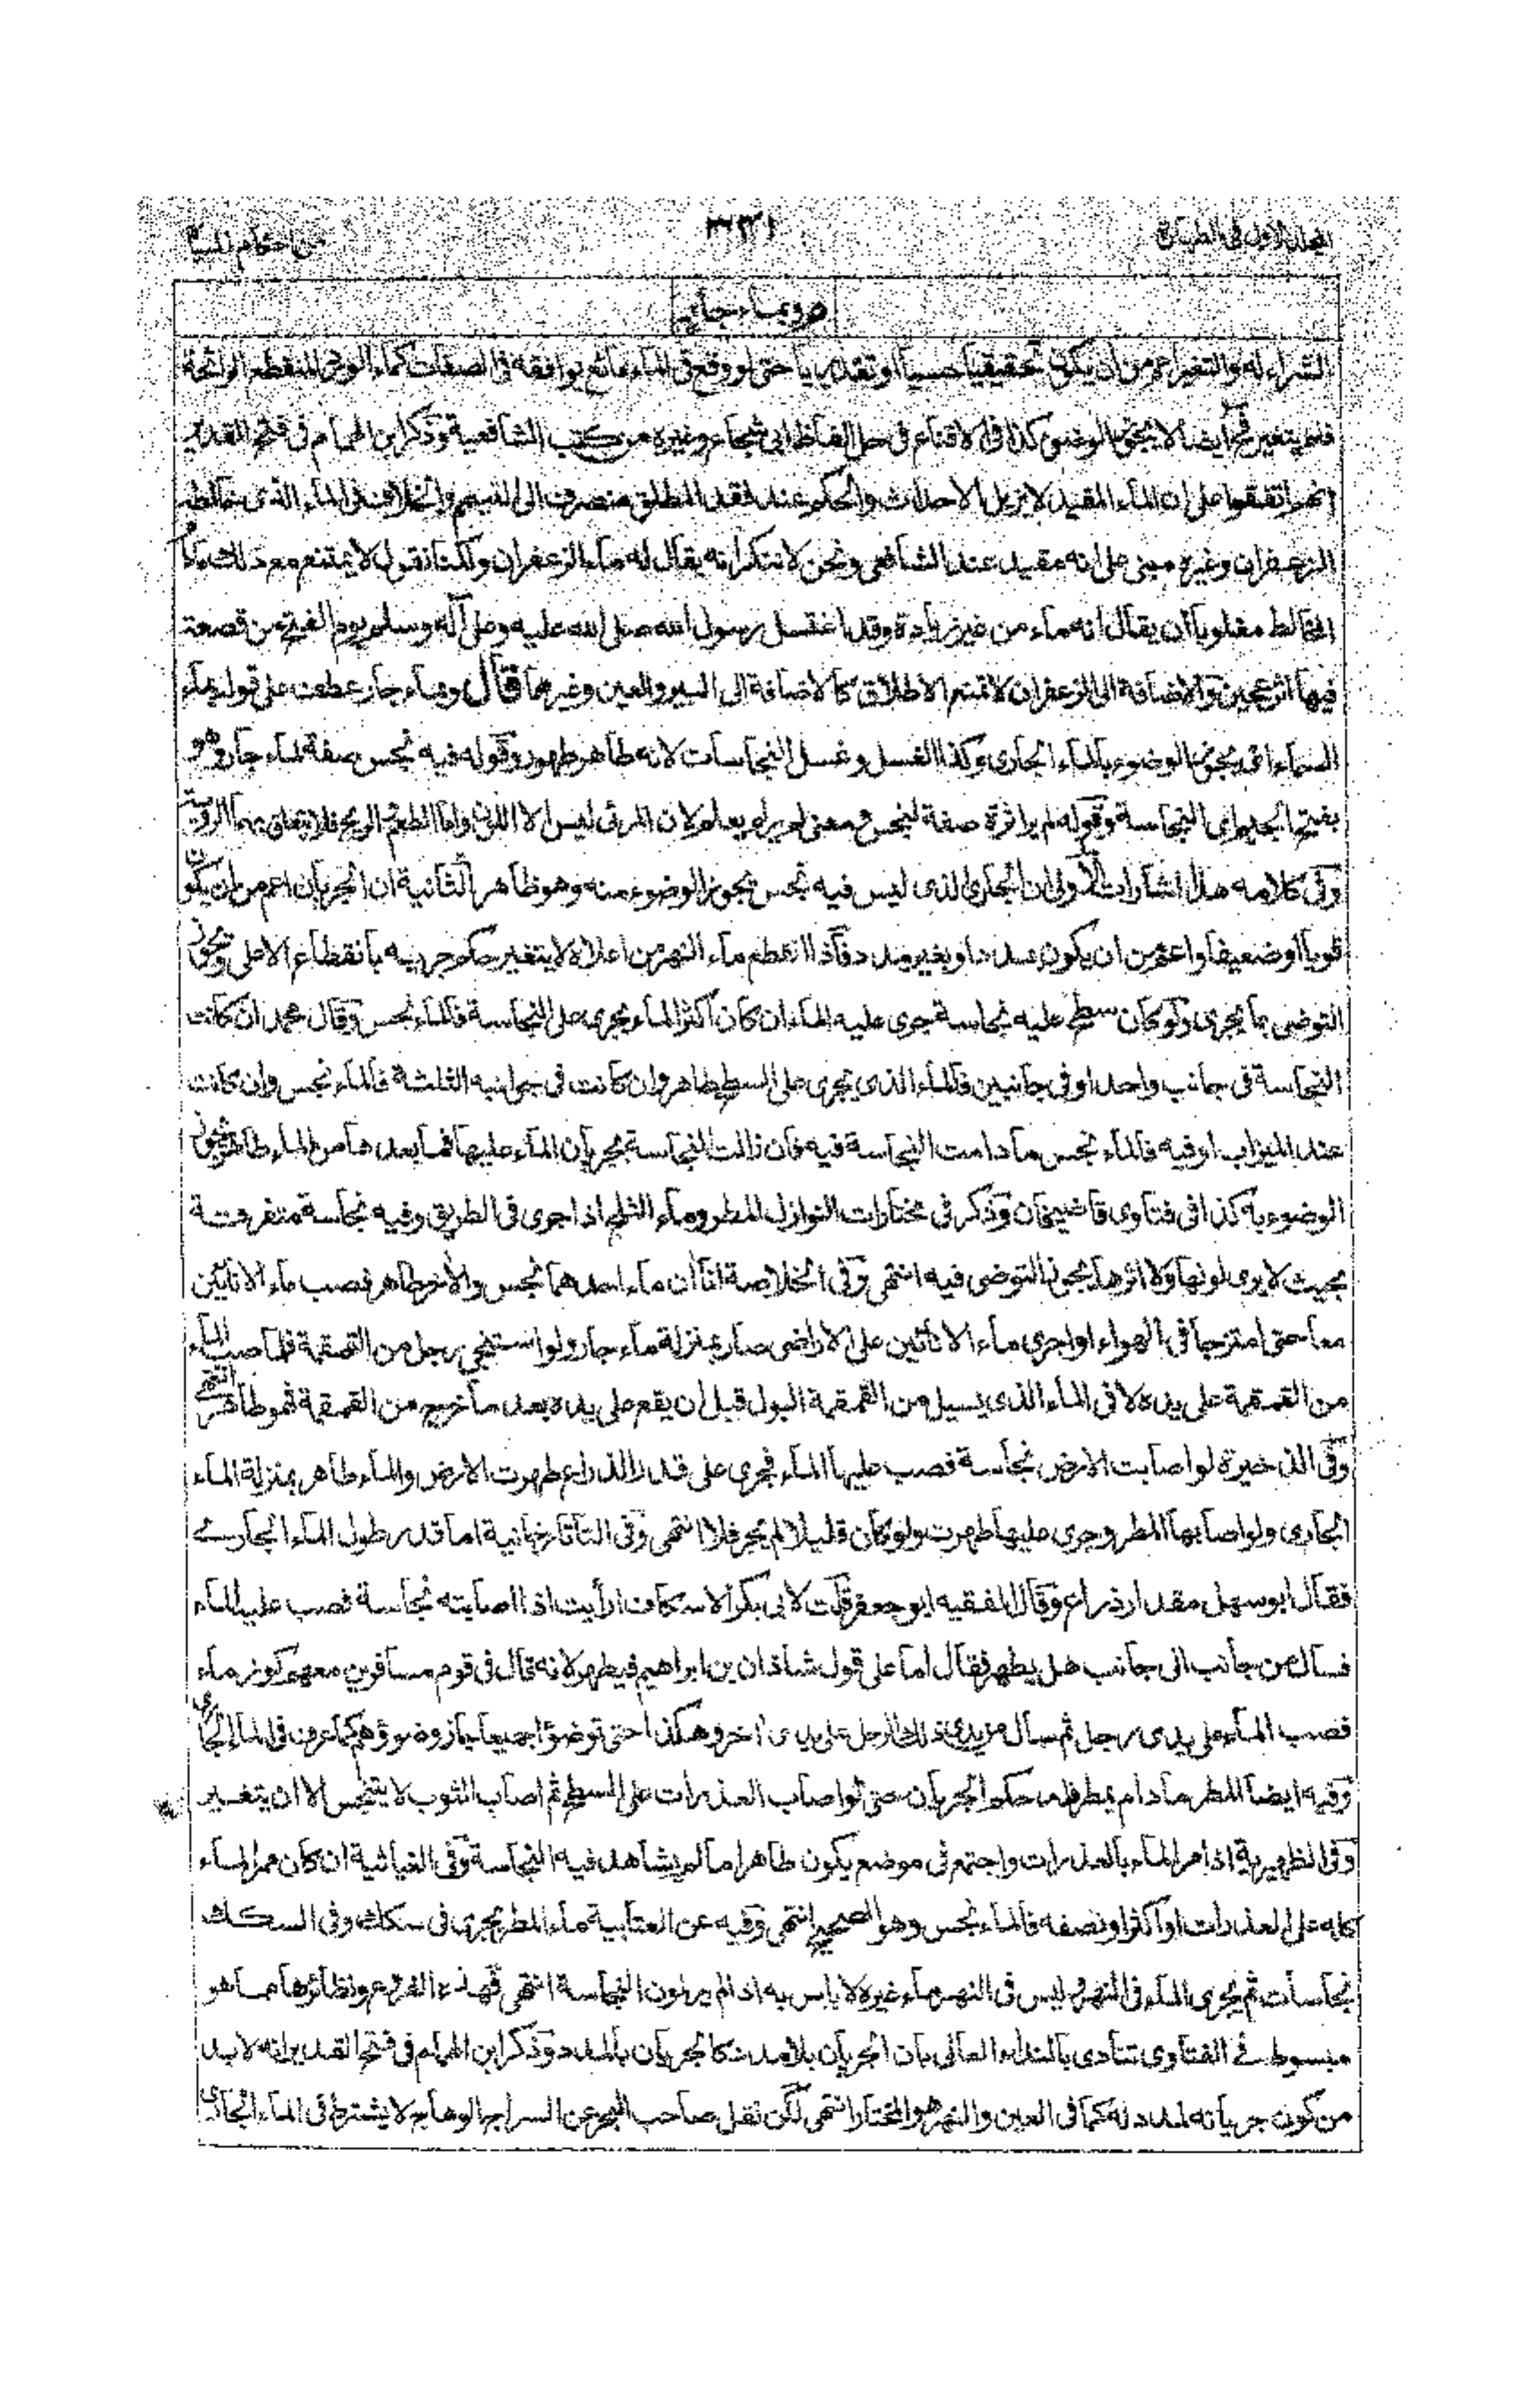 المجلد الاول فى الطهارة ٣٣١ من احكام المياه
ص وبماء جار
الشراء له والتغير اعم من ان يكون تحقيقيا حسيا او تقديريا حتى لو وقع فى الماء مائع يوافقه فى الصفات كماء الورد المنقطع الرائحة
فلم يتغير فح ايضا لا يجوز الوضوء كذا فى الاقناع فى حل الفاظ ابى شجاع وغيره من كتب الشافعية وذكر ابن الهمام فى فتح القدير
انهم اتفقوا على ان الماء المقيد لا يزيل الاحداث والحكم عند فقد المطلق منصرف الى التيمم والخلاف فى الماء الذى خالطه
الزعفران وغيره مبنى على انه مقيد عند الشافعى ونحن لا ننكر انه يقال له ماء الزعفران ولكنا نقول لا يمتنع مع ذلك مادام
المخالط مغلوبا ان يقال انه ماء من غير زيادة وقد اغتسل رسول الله صلى الله عليه وعلى آله وسلم يوم الفتح من قصعة
فيها اثر عجين والاضافة الى الزعفران لا تمنع الاطلاق كالاضافة الى البير والعين وغيرهما قال وبماء جار عطف على قوله بماء
السماء اى يجوز الوضوء بالماء الجارى وكذا الغسل وغسل النجاسات لانه طاهر طهور وقوله فيه نجس صفة لماء جار وهو
بفتح الجيم اى النجاسة وقوله لم ير اثره صفة لنجس ومعنى لم ير لم يعلم لان المرئى ليس الا اللون واما الطعم والريح فلا يتعلق بهما الروية
وفى كلامه هذا اشارات الاولى ان الجارى الذى ليس فيه نجس يجوز الوضوء منه وهو ظاهر الثانية ان الجريان اعم من ان يكون
قويا او ضعيفا واعم من ان يكون بمدد او بغير مدد فاذا انقطع ماء النهر من اعلاه لا يتغير حكم جريه بانقطاع الاعلى ويجوز
التوضى بما يجرى ولو كان سطح عليه نجاسة جرى عليه الماء ان كان اكثر الماء يجرى على النجاسة فالماء نجس وقال محمد ان كانت
النجاسة فى جانب واحد او فى جانبين فالماء الذى يجرى على السطح طاهر وان كانت فى جوانبه الثلثة فالماء نجس وان كانت
عند الميزاب او فيه فالماء نجس ما دامت النجاسة فيه فان زالت النجاسة بجريان الماء عليها فما بعدها من الماء طاهر يجوز
الوضوء به كذا فى فتاوى قاضيخان وذكر فى مختارات النوازل المطر وماء الثلج اذا جرى فى الطريق وفيه نجاسة متفرقة
بحيث لا يرى لونها ولا اثرها يجوز التوضى فيه انتهى وفى الخلاصة اناآن ماء احدهما نجس والآخر طاهر فصب ماء الانائين
معا حتى امتزجا فى الهواء او اجرى ماء الانائين على الاراضى صار بمنزلة ماء جار ولو استنجى رجل من القمقمة فلما صب الماء
من القمقمة على يده لاقى الماء الذى يسيل من القمقمة البول قبل ان يقع على يده بعد ما خرج من القمقمة فهو طاهر انتهى
وفى الذخيرة لو اصابت الارض نجاسة فصب عليها الماء فجرى على قدر الذراع طهرت الارض والماء طاهر بمنزلة الماء
الجارى ولو اصابها المطر وجرى عليها طهرت ولو كان قليلا لم يجر فلا انتهى وفى التاتارخانية اما قدر طول الماء الجارى
فقال ابو سهل مقدار ذراع وقال الفقيه ابو جعفر قلت لابى بكر الاسكاف ارأيت اذا اصابته نجاسة فصب عليه الماء
فسال من جانب الى جانب هل يطهر فقال اما على قول شاذان بن ابراهيم فيطهر لانه قال فى قوم مسافرين معهم كوز ماء
فصب الماء على يدى رجل ثم سال من يدى ذلك الرجل على يدى آخر وهكذا حتى توضؤا جميعا جاز وضوؤهم كما عرف فى الماء الجارى
وفيه ايضا المطر مادام يمطر فله حكم الجريان حتى لو اصاب العذرات على السطح ثم اصاب الثوب لا يتنجس الا ان يتغير
وفى الظهيرية اذا مر الماء بالعذرات واجتمع فى موضع يكون طاهرا ما لم يشاهد فيه النجاسة وفى الغياثية ان كان ممر الماء
كله على العذرات او اكثر او نصفه فالماء نجس وهو الصحيح انتهى وفيه عن العتابية ماء المطر يجرى فى سكك وفى السكك
نجاسات ثم يجرى الماء فى النهر وليس فى النهر ماء غيره لا باس به اذا لم ير لون النجاسة انتهى فهذه الفروع ونظائرها مما هو
مبسوط فى الفتاوى تنادى بالنداء العالى بان الجريان بلا مدد كالجريان بالمدد وذكر ابن الهمام فى فتح القدير انه لا بد
من كون جريانه لمدد له كما فى العين والنهر هو المختار انتهى لكن نقل صاحب البحر عن السراج الوهاج لا يشترط فى الماء الجارى